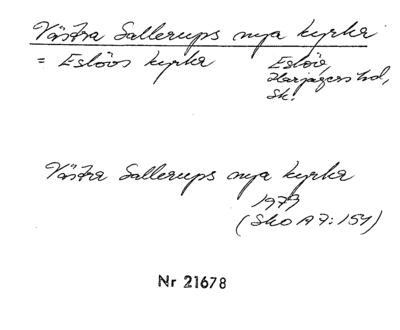 Västra Sallerups nya kyrka
= Eslövs kyrka Eslöv,
Harjagers hd,
Sk.
Västra Sallerups nya kyrka
1979
(Sko A 7:154)
Nr 21678